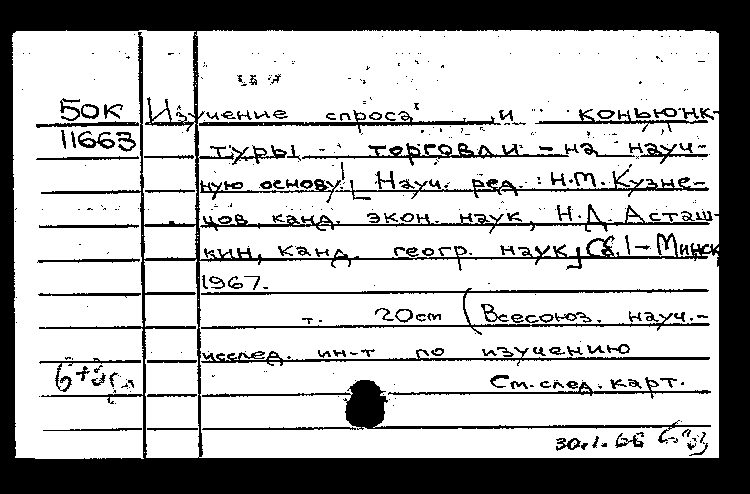 50К Изучение спроса и конъюнк-
11663 туры торговли - на науч-
ную основу! [Науч. ред.: Н.М. Кузне-
цов, канд. экон. наук, Н.Д. Асташ-
кин, канд. геогр. наук] Сб. 1 - Минск,
1967.
т. 20 см (Всесоюз. науч.-
исслед. ин-т по изучению
См. след. карт.
30.1.68